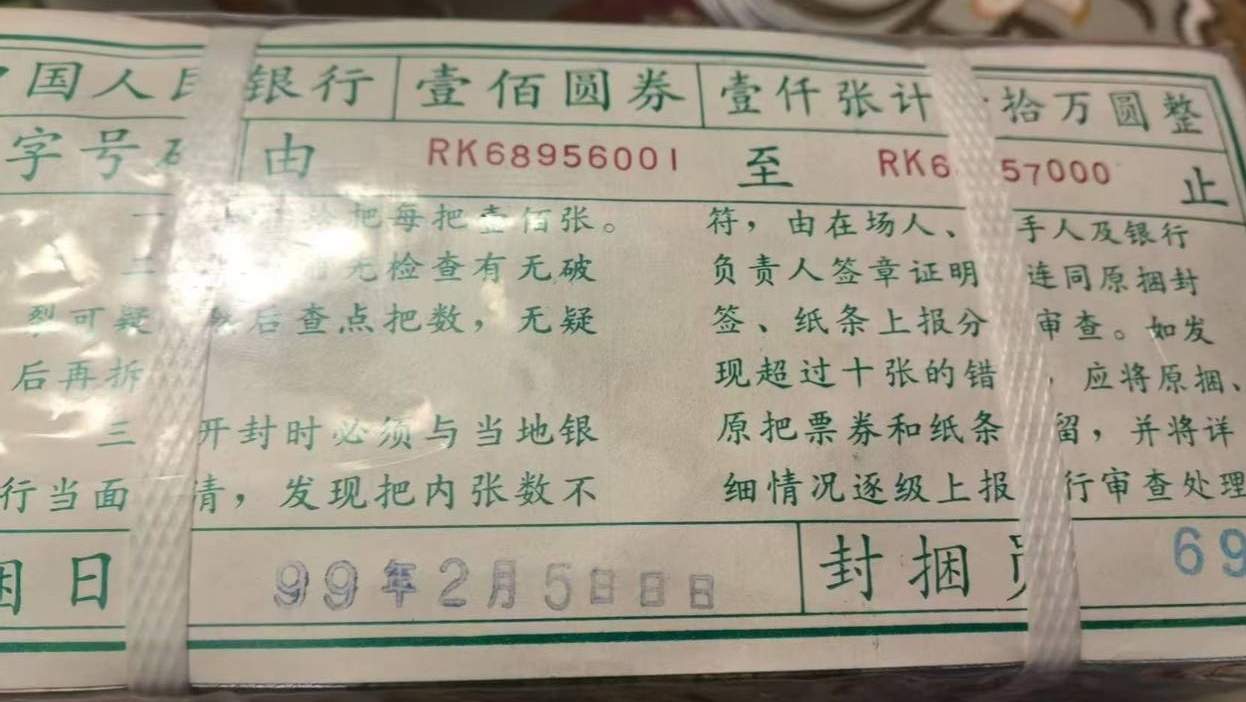 国人民银行 壹佰圆券 壹仟张计 拾万圆整
字号 由 RK68956001 至 RK6 57000 止
一 把每把壹佰张。
二 先检查有无破
裂可疑 然后查点把数，无疑
后再拆
三 开封时必须与当地银
行当面 清，发现把内张数不
符，由在场人、 手人及银行
负责人签章证明 连同原捆封
签、纸条上报分 审查。如发
现超过十张的错 ，应将原捆、
原把票券和纸条 留，并将详
细情况逐级上报 行审查处理
捆日 99年2月5日日日 封捆员 69